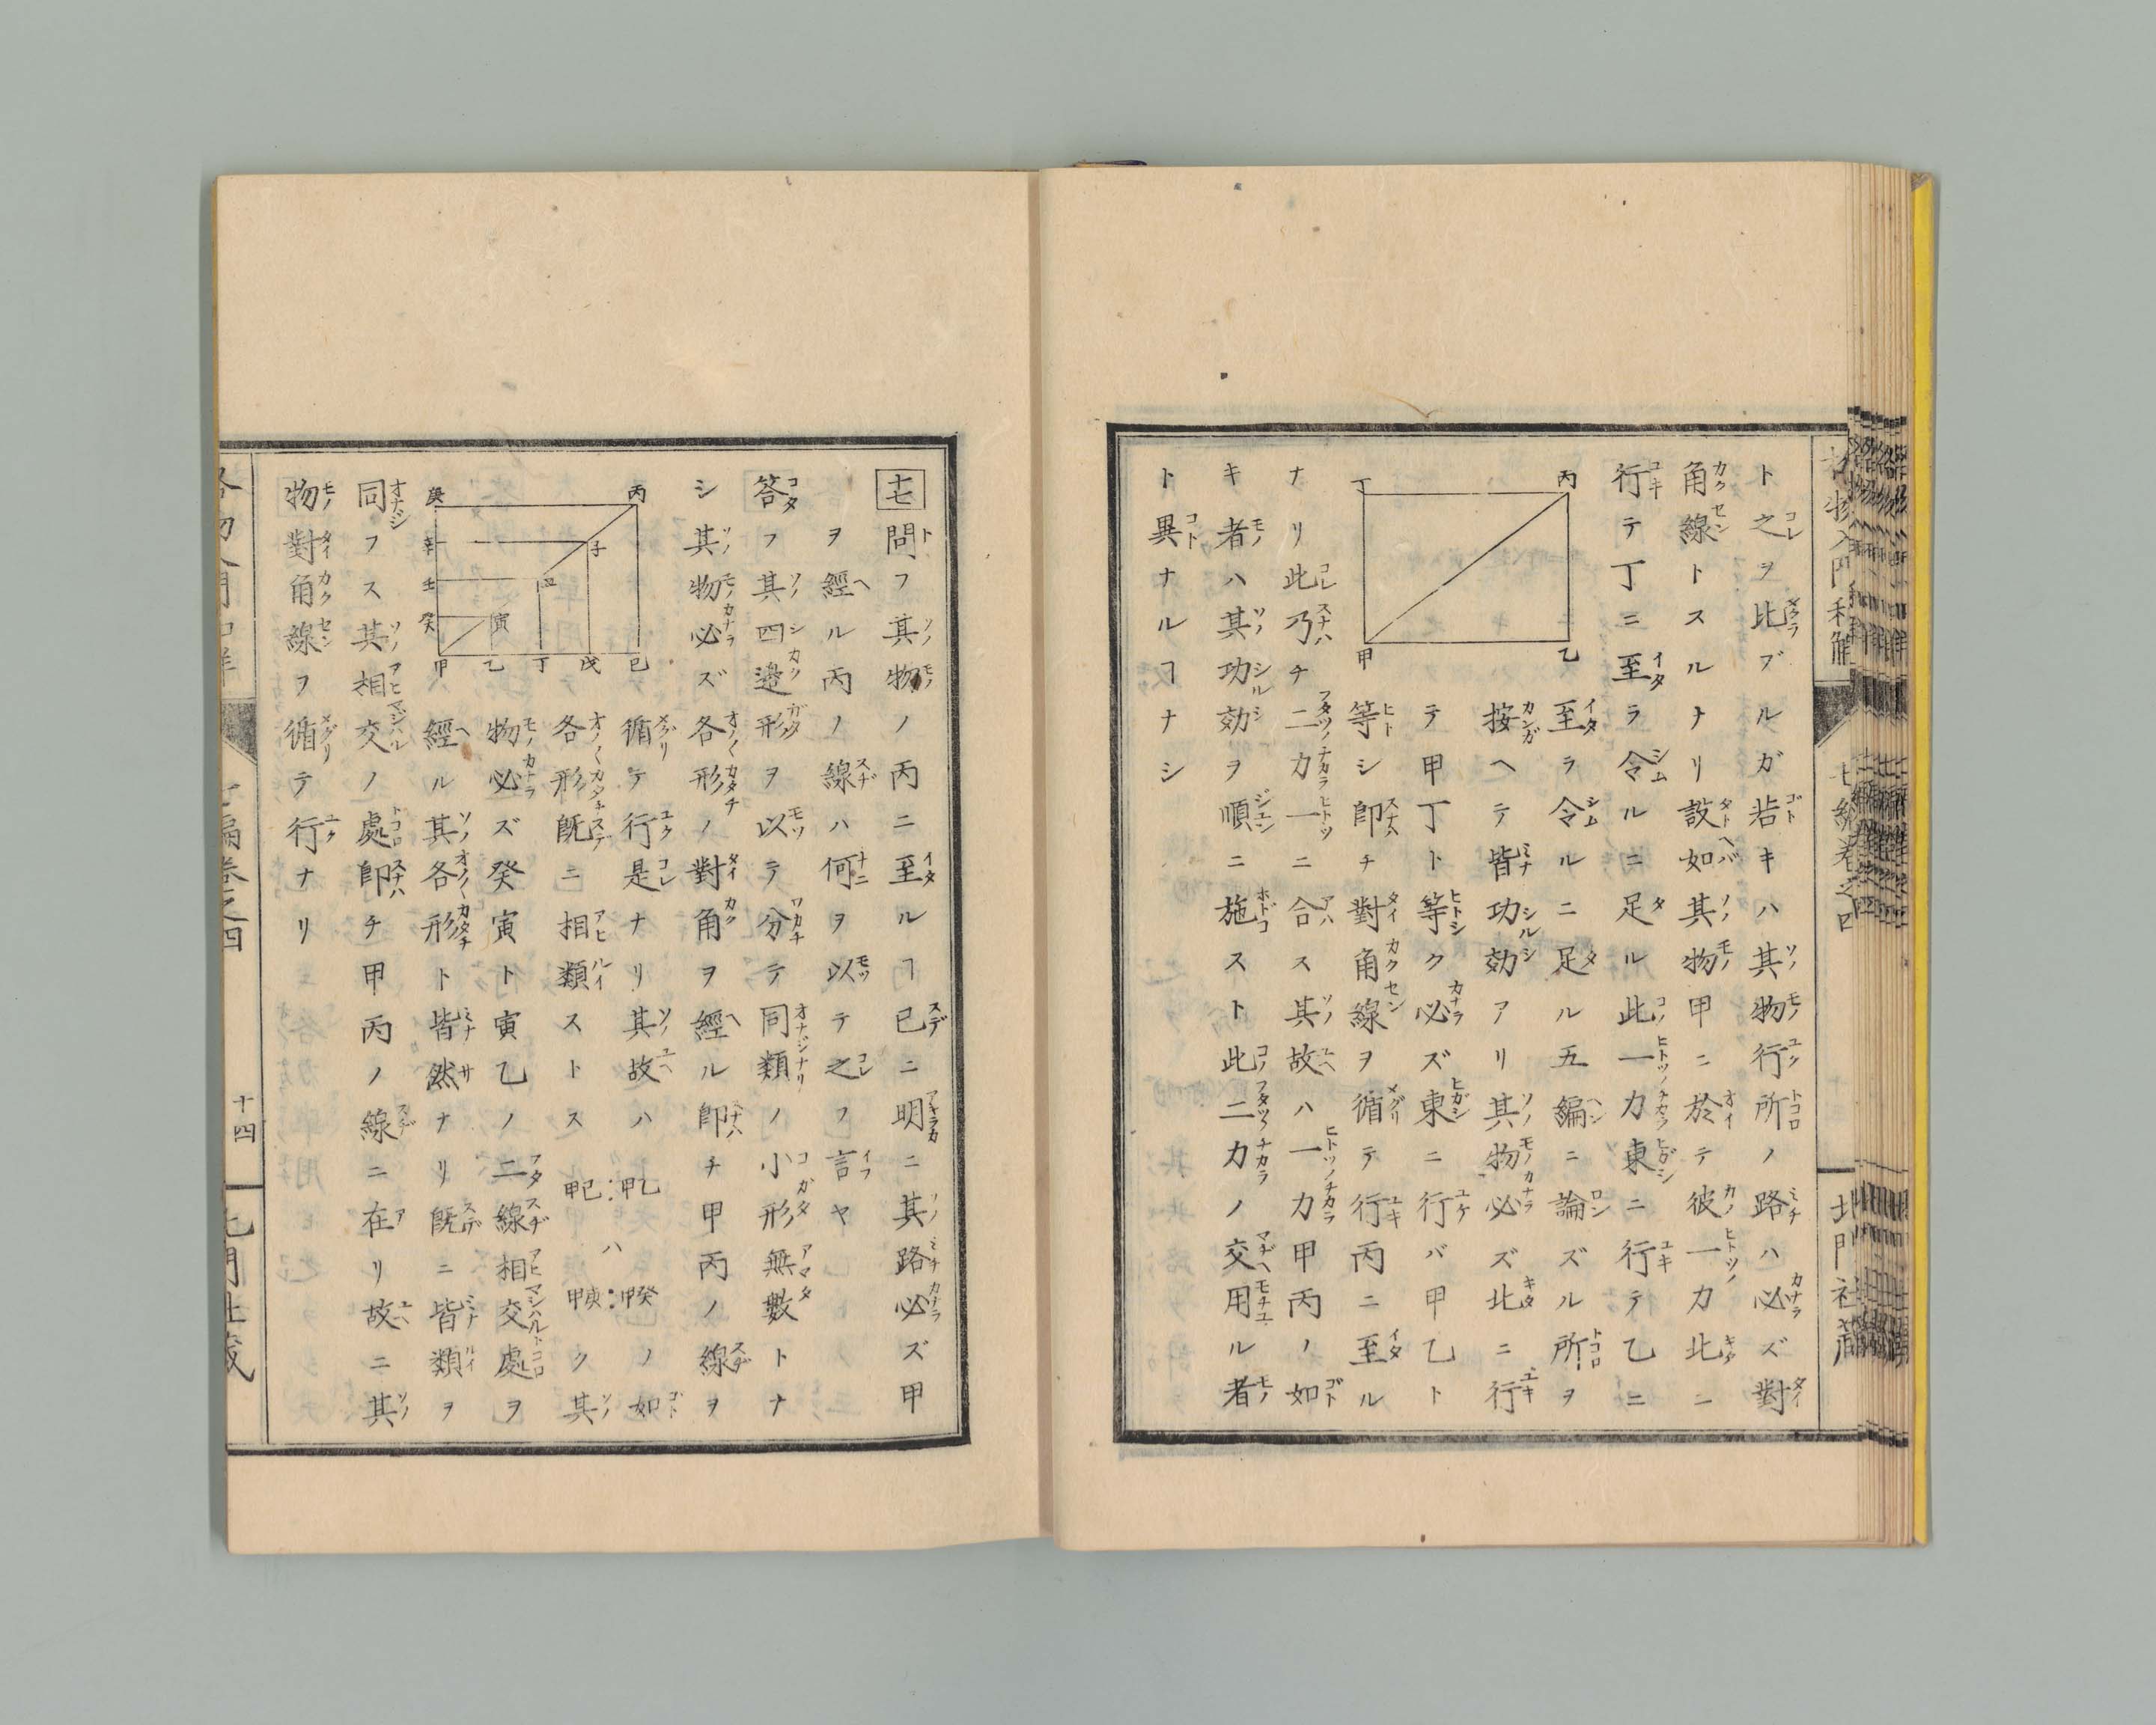 ト之ヲ比ブルガ若キハ其物行所ノ路ハ必ズ對
角線トスルナリ設如其物甲ニ於テ彼一力北ニ
行テ丁ニ至ラ令ルニ足ル此一力東ニ行テ乙ニ
至ラ令ルニ足ル五編ニ論ズル所ヲ
按ヘテ皆功効アリ其物必ズ北ニ行
テ甲丁ト等ク必ズ東ニ行バ甲乙ト
等シ即チ對角線ヲ循テ行丙ニ至ル
丙
丁
乙
甲
ナリ此乃チ二力一ニ合ス其故ハ一力甲丙ノ如
キ者ハ其功効ヲ順ニ施スト此二力ノ交用ル者
ト異ナルヿナシ
格物入門和解
七編卷之四
北門社藏
十七
問フ其物ノ丙ニ至ルヿ已ニ明ニ其路必ズ甲
ヲ經ル丙ノ線ハ何ヲ以テ之ヲ言ヤ
答フ其四邉形ヲ以テ分テ同類ノ小形無數トナ
シ其物必ズ各形ノ對角ヲ經ル即チ甲丙ノ線ヲ
循テ行是ナリ其故ハ甲乙:甲己ハ甲癸:甲庚ノ如ク
各形既ニ相類ストス其
物必ズ癸寅ト寅乙ノ二線相交處ヲ
經ル其各形ト皆然ナリ既ニ皆類ヲ
丙
庚
辛
子
壬
丑
癸
寅
甲
乙
丁
戊
己
同フス其相交ノ處即チ甲丙ノ線ニ在リ故ニ其
物對角線ヲ循テ行ナリ
十四